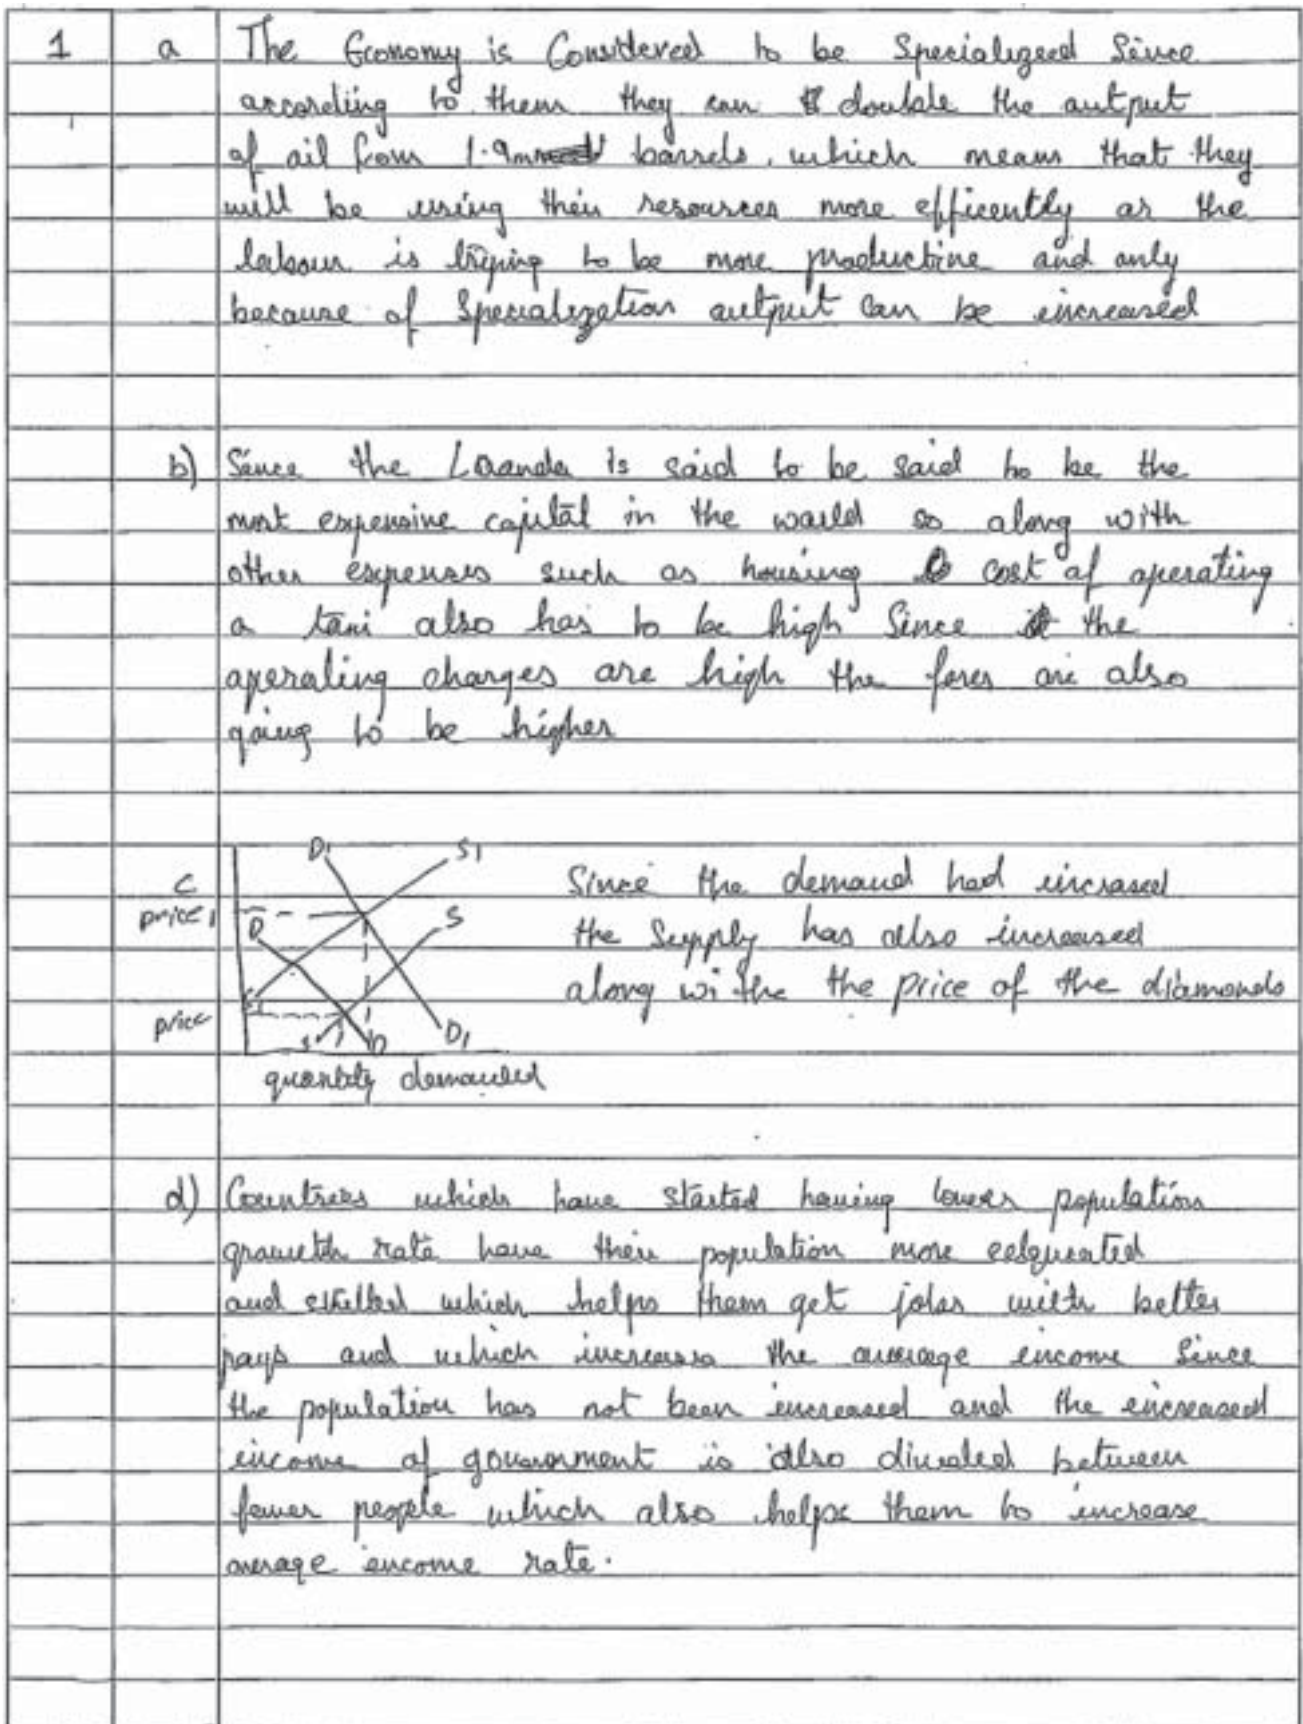 1 a The Economy is Considered to be Specialized Since
according to them they can double the output
of oil from 1.9m barrels. which means that they
will be using their resources more efficently as the
labour is trying to be more productive and only
because of Specialization output can be increased
b) Since the Luanda is said to be said to be the
most expensive capital in the world so along with
other expenses such as housing cost of operating
a taxi also has to be high Since the
operating charges are high the fares are also
going to be higher
c
D1 S1
price1
D S
S1
price
S D D1
quantity demanded
Since the demand had incrased
the Supply has also increased
along withe the price of the diamonds
d) Countries which have started having lower population
growth rate have their population more
and skilled which helps them get jobs with better
pays and which increases the average income Since
the population has not been increased and the increased
income of government is also divided between
fewer people which also helps them to increase
average income rate.